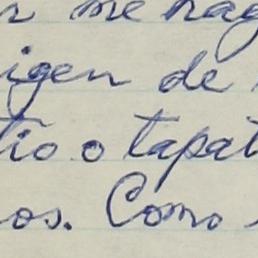 r me hag
igen de
tio o tapat
os. Como